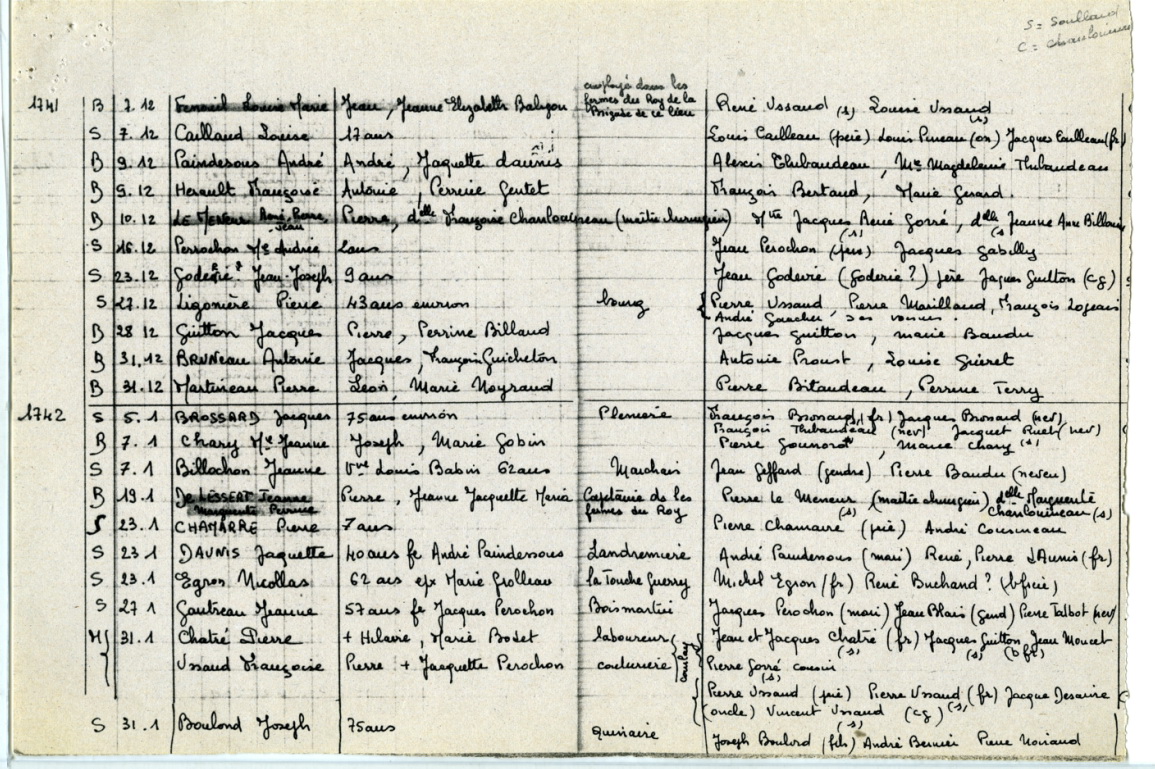 S = Soullaud
C =
employé dans les
fermes du Roy de la
Brigade de ce lieu
1741 B 7.12 Louis Marie Jean, Jeanne Elizabeth René Ussaud (s) Louise Ussaud (s)
S 7.12 Caillaud Louise 17 ans Louis Cailleau (père) Louis Pineau (on) Jacques Cailleau (fr)
B 9.12 Paindesous André André, Jaquette daunis Alexis Thibaudeau, Me Magdeleine Thibaudeau
B 9.12 Herault Françoise Antoine, Perrine Gentet François Bertaud, Marie Gerard
B 10.12 René-Pierre Jean Pierre, delle Françoise (maître chirurgien) Mtre Jacques René Gorré, delle Jeanne Anne
(s) (s)
S 16.12 Perrochon Me Andrée 2 ans Jean Perochon (père) Jacques Gabilly
S 23.12 Goderie? Jean-Joseph 9 ans Jean Goderie (Goderie?) père Jaques Guitton (cg)
S 27.12 Ligonière Pierre 43 ans environ bourg { Pierre Ussaud, Pierre Maillaud, François Logeais
André Gaucher, ses voisins.
B 28 12 Guitton Jacques Pierre, Perrine Billaud Jacques Guitton, Marie Baudu
B 31.12 BRUNeau Antonie Jacques, François Guicheton Antonie Proust, Louise Guéret
B 31.12 Martineau Pierre Léon, Marie Noyraud Pierre Bitaudeau, Perrine Terry
1742 S 5.1 BROSSARD Jacques 75 ans environ François Brossard (fr) Jacques Brossard (nev)
François Thibaudeau (nev) Jacquet (nev)
B 7.1 Chary Me Jeanne Joseph, Marie Gobin Pierre, Marie Chary (s)
S 7.1 Billochon Jeanne Vve Louis Babin 62 ans Marchais Jean Giffard (gendre) Pierre Baudu (neveu)
B 19.1 De LESSERT Jeanne Pierre, Jeanne Jacquette Maria Capitaine de les Pierre le Meneur (maître chirurgien) delle Marguerite
Marguerite Perrine fermes du Roy (s) (s)
S 23.1 CHAMARRE Pierre 7 ans Pierre Chamaire (père) André Cousineau
S 23 1 DAUNIS Jaquette 40 ans fe André Paindesous Landremière André Paindesous (mari) René, Pierre dAunis (fr)
S 23.1 Egron Nicollas 62 ans epx Marie Grolleau la Touche Guerry Michel Egron (fr) René Buchand? (bfrère)
S 27 1 Gautreau Jeanne 57 ans fe Jacques Perochon Boismartin Jacques Perochon (mari) Jean Blais (gend) Pierre Talbot (nev)
M { 31.1 Chatré Pierre + Hilaire, Marie Bodet laboureur Jean et Jacques Chatré (fr) Jacques Guitton Jean Moucet
(s) (s) (b fr)
Ussaud Françoise Pierre + Jacquette Perochon couturière Pierre Gorré cousin
(s)
Pierre Ussaud (père) Pierre Ussaud (fr) (s) Jacque Desaire
(oncle) Vincent Ussaud (cg)
(s)
S 31.1 Boulord Joseph 75 ans Quinaire
Joseph Boulord (fils) André Bernier Pierre Noiraud